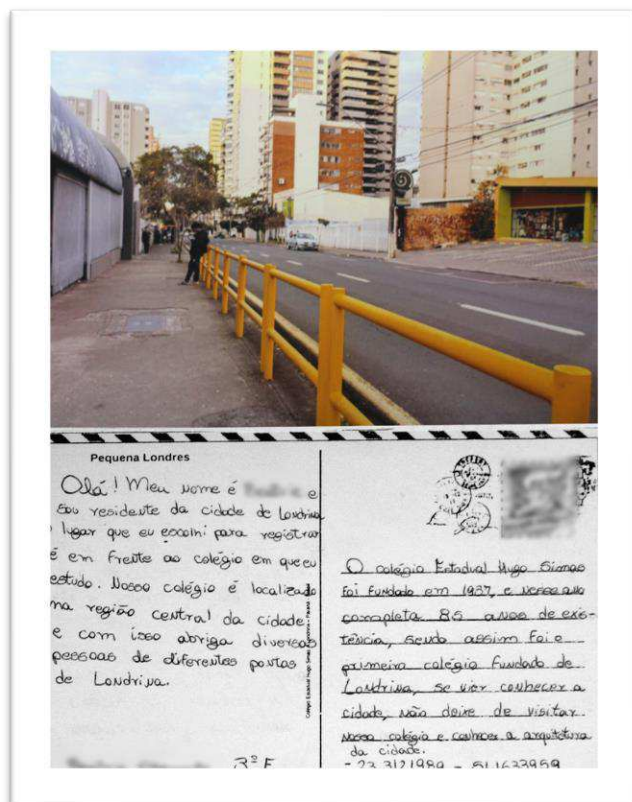 Pequena Londres
Olá! Meu nome é e
sou residente da cidade de Londrina
lugar que eu escolhi para registrar
é em frente ao colégio em que eu
estudo. Nosso colégio é localizado
na região central da cidade
e com isso abriga diversas
pessoas de diferentes pontos
de Londrina.
3º F
O colégio Estadual Hugo Simas
foi fundado em 1937, e nesse ano
completa 85 anos de exis-
tência, sendo assim foi o
primeiro colégio fundado de
Londrina, se vier conhecer a
cidade, não deixe de visitar
nosso colégio e conhecer a arquitetura
da cidade.
- 23.3121989 - 51.1633959